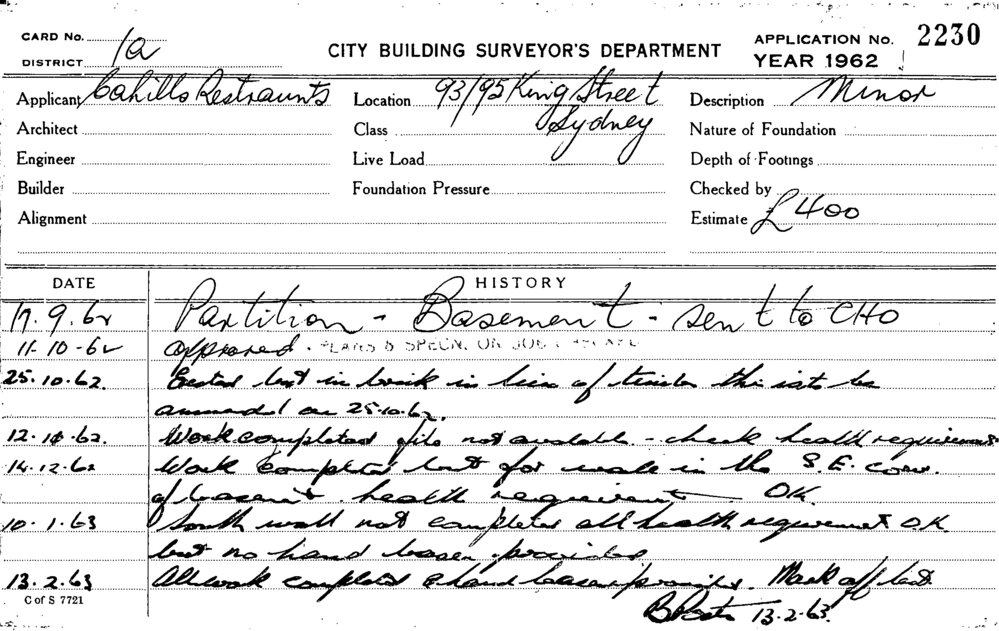 CARD No. 1a
DISTRICT
CITY BUILDING SURVEYOR'S DEPARTMENT
APPLICATION No. 2230
YEAR 1962
Applicant Cahills Restraunts
Location 93/95 King Street
Sydney
Description Minor
Architect
Class
Nature of Foundation
Engineer
Live Load
Depth of Footings
Builder
Foundation Pressure
Checked by
Alignment
Estimate £400
DATE HISTORY
17.9.62 Partition - Basement - sent to CHO
11-10-62 approved. PLANS & SPECN. ON JOB
25.10.62. but in brick in lieu of timber this is to be
on 25.10.62.
12.10.62. Work completed file not available - check health requirement
14.12.62 Work completed but for wall in the S.E. corn.
of basemt. health requirement OK
10.1.63 South wall not completed all health requirement O.K
but no hand basen provided
13.2.63 All work completed & hand basen provided. Mark off last.
13-2-63.
C of S 7721